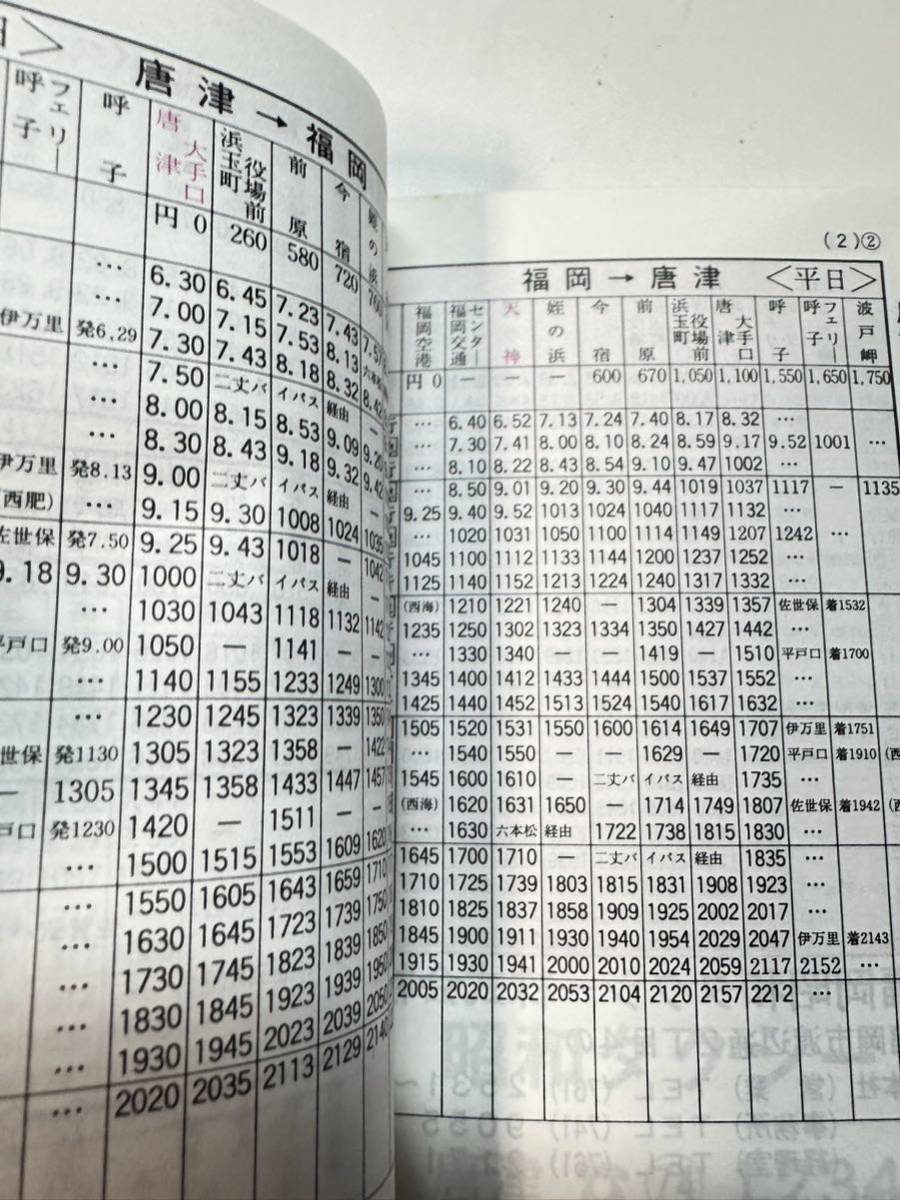 日＞ 唐津→福岡
呼子フェリー 呼子 唐津大手口 浜玉町役場前 前原 今宿 姪の浜
円 0 260 580 720
… 6.30 6.45 7.23 7.43 7.57
伊万里 発6.29 7.00 7.15 7.53 8.13 六本松
… 7.30 7.43 8.18 8.32 8.42
… 7.50 二丈バイパス経由
… 8.00 8.15 8.53 9.09 9.20
伊万里 発8.13 8.30 8.43 9.18 9.32 9.42
(西肥) … 9.00 二丈バイパス経由
… 9.15 9.30 1008 1024 1035
佐世保 発7.50 9.25 9.43 1018 — 1042
9.18 9.30 1000 二丈バイパス経由
… 1030 1043 1118 1132 1142
平戸口 発9.00 1050 — 1141 — —
… 1140 1155 1233 1249 1300
… 1230 1245 1323 1339 1350
世保 発1130 1305 1323 1358 — 1422
— 1305 1345 1358 1433 1447 1457
戸口 発1230 1420 — 1511 — —
… 1500 1515 1553 1609 1620
… 1550 1605 1643 1659 1710
… 1630 1645 1723 1739 1750
… 1730 1745 1823 1839 1850
… 1830 1845 1923 1939 1950
… 1930 1945 2023 2039 2050
… 2020 2035 2113 2129 2140
(2)②
福岡→唐津 ＜平日＞
福岡空港 福岡交通センター 天神 姪の浜 今宿 前原 浜玉町役場前 唐津大手口 呼子 呼子フェリー 波戸岬
円 0 — — — 600 670 1,050 1,100 1,550 1,650 1,750
… 6.40 6.52 7.13 7.24 7.40 8.17 8.32 …
… 7.30 7.41 8.00 8.10 8.24 8.59 9.17 9.52 1001 …
… 8.10 8.22 8.43 8.54 9.10 9.47 1002 …
… 8.50 9.01 9.20 9.30 9.44 1019 1037 1117 — 1135
9.25 9.40 9.52 1013 1024 1040 1117 1132 …
… 1020 1031 1050 1100 1114 1149 1207 1242 …
1045 1100 1112 1133 1144 1200 1237 1252 …
1125 1140 1152 1213 1224 1240 1317 1332 …
(西海) 1210 1221 1240 — 1304 1339 1357 佐世保 着1532
1235 1250 1302 1323 1334 1350 1427 1442 …
… 1330 1340 — — 1419 — 1510 平戸口 着1700
1345 1400 1412 1433 1444 1500 1537 1552 …
1425 1440 1452 1513 1524 1540 1617 1632 …
1505 1520 1531 1550 1600 1614 1649 1707 伊万里 着1751
… 1540 1550 — — 1629 — 1720 平戸口 着1910 (西
1545 1600 1610 — 二丈バイパス経由 1735 …
(西海) 1620 1631 1650 — 1714 1749 1807 佐世保 着1942 (西
… 1630 六本松経由 1722 1738 1815 1830 …
1645 1700 1710 — 二丈バイパス経由 1835 …
1710 1725 1739 1803 1815 1831 1908 1923 …
1810 1825 1837 1858 1909 1925 2002 2017 …
1845 1900 1911 1930 1940 1954 2029 2047 伊万里 着2143
1915 1930 1941 2000 2010 2024 2059 2117 2152 …
2005 2020 2032 2053 2104 2120 2157 2212 …